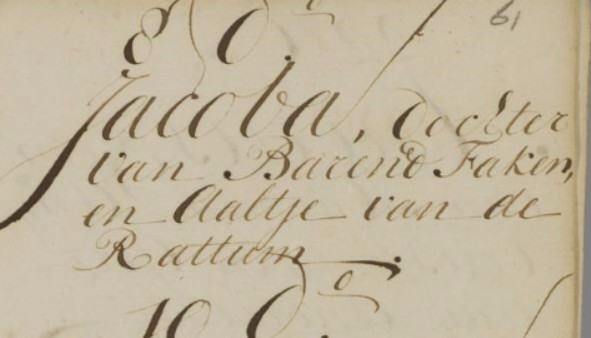 61
8 d.º
Jacoba, dochter
van Barend Faken,
en Aaltje van de
Rattum.
10 d.º